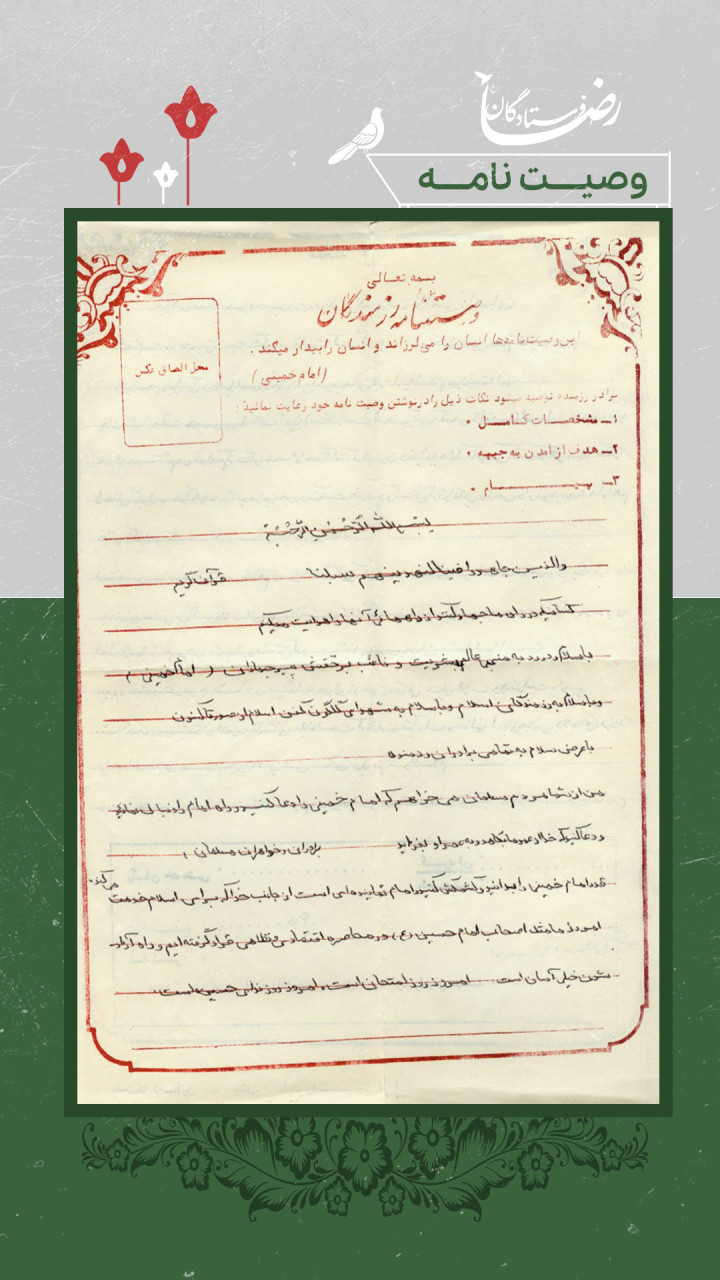 فرستادگان رضا
وصیت نامه
بسمه تعالی
وصیتنامه رزمندگان
این وصیت‌نامه‌ها انسان را می‌لرزاند و انسان را بیدار میکند .
(امام خمینی)
محل الصاق عکس
برادر رزمنده توصیه میشود نکات ذیل را در نوشتن وصیت نامه خود رعایت نمائید :
۱ـ مشخصات کامل .
۲ـ هدف از آمدن به جبهه .
۳ـ پیام .
بسم الله الرحمن الرحیم
والذین جاهدوا فینا لنهدینهم سبلنا قرآن کریم
کسانیکه در راه ما جهاد کنند راههای آنها را هدایت میکنیم
با سلام و درود به منجی عالم بشریت و نائب برحقش پیر جماران امام خمینی
و با سلام به رزمندگان اسلام و با سلام به شهدای گلگون کفن اسلام از صدر تا کنون
با عرض سلام به تمامی برادران رزمنده
من از شما مردم مسلمان می خواهم که امام خمینی را دعا کنید و راه امام را دنبال نمائید
و دعا کنید که خدا از عمر ما بکاهد و به عمر او بیفزاید برادران و خواهران مسلمان
قدر امام خمینی را بدانید و کمکش کنید امام نماینده‌ای است از جانب خدا که برای اسلام خدمت می کند.
امروز ما مثل اصحاب امام حسین (ع) در محاصره اقتصادی و نظامی قرار گرفته ایم و راه آزاد
شدن خیلی آسان است امروز روز امتحان است، امروز روز ندای حسین است